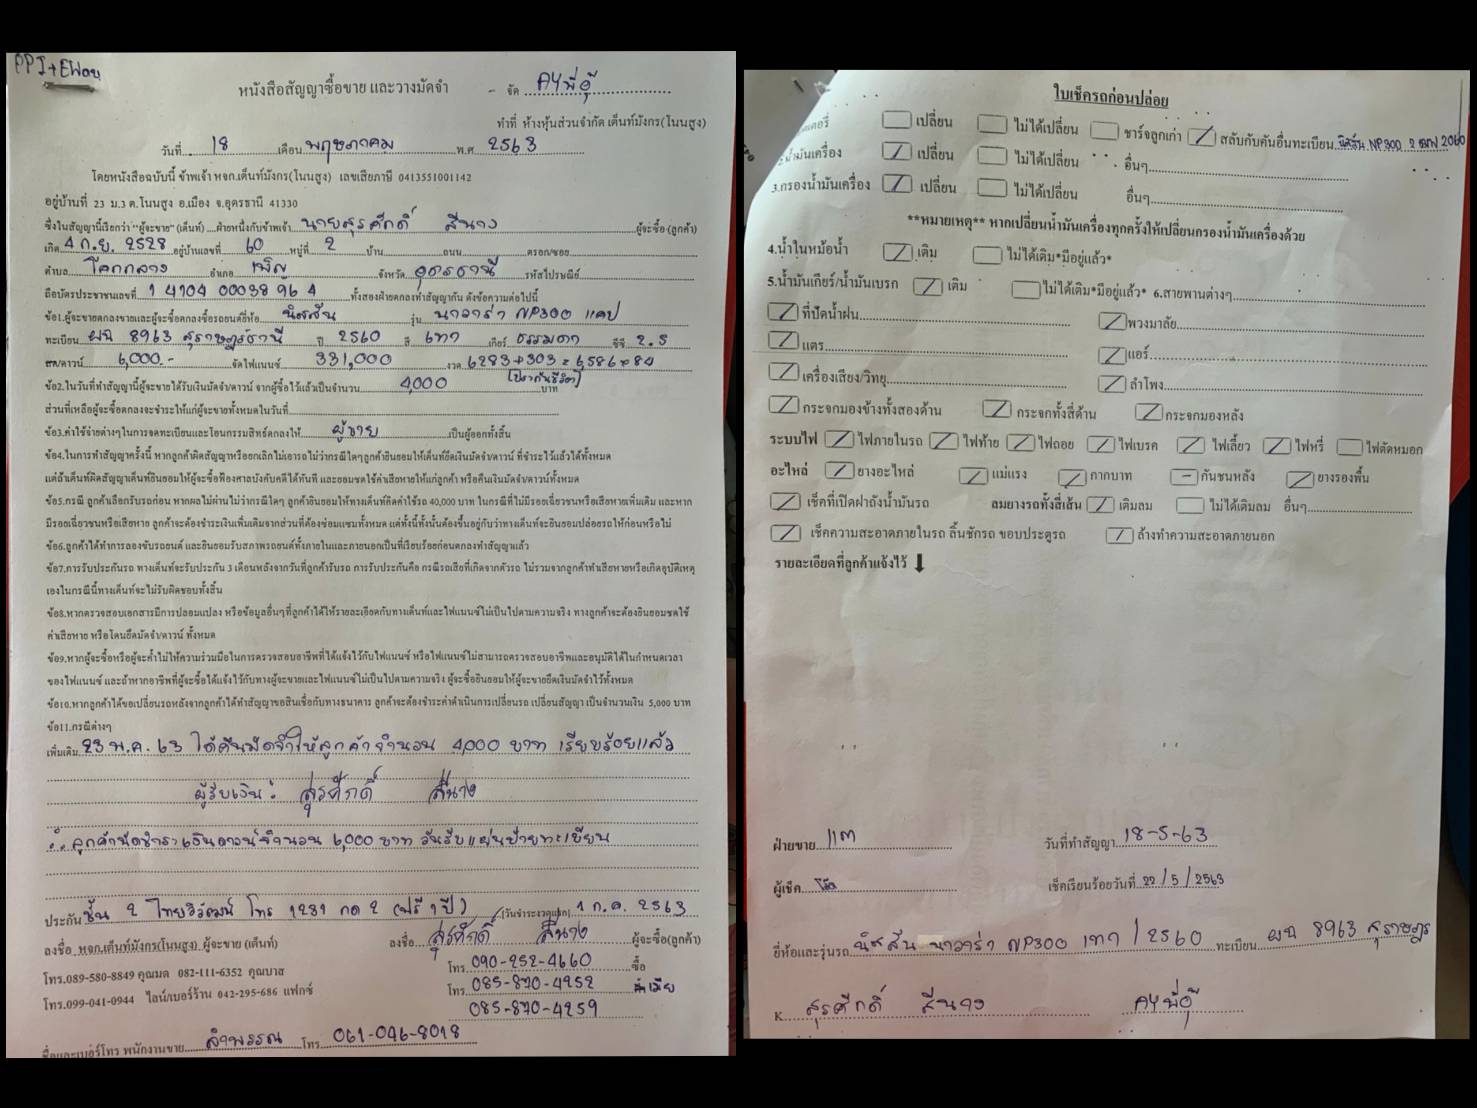 PPI+EWอน
หนังสือสัญญาซื้อขาย และวางมัดจำ - จัด AYพี่อุ้
ทำที่ ห้างหุ้นส่วนจำกัด เต็นท์มังกร(โนนสูง)
วันที่ 18 เดือน พฤษภาคม พ.ศ. 2563
โดยหนังสือฉบับนี้ ข้าพเจ้า หจก.เต็นท์มังกร(โนนสูง) เลขเสียภาษี 0413551001142
อยู่บ้านที่ 23 ม.3 ต.โนนสูง อ.เมือง จ.อุดรธานี 41330
ซึ่งในสัญญานี้เรียกว่า "ผู้จะขาย" (เต็นท์) ....ฝ่ายหนึ่งกับข้าพเจ้า นายสุรศักดิ์ สีนาง ผู้จะซื้อ (ลูกค้า)
เกิด 4 ก.ย. 2528 อยู่บ้านเลขที่ 60 หมู่ที่ 2 บ้าน ถนน ตรอก/ซอย
ตำบล โคกกลาง อำเภอ เพ็ญ จังหวัด อุดรธานี รหัสไปรษณีย์
ถือบัตรประชาชนเลขที่ 1 4104 00038 96 4 ทั้งสองฝ่ายตกลงทำสัญญากัน ดังข้อความต่อไปนี้
ข้อ1.ผู้จะขายตกลงขายและผู้จะซื้อตกลงซื้อรถยนต์ยี่ห้อ นิสสัน รุ่น นาวาร่า NP300 แคป
ทะเบียน ผฉ 8963 สุราษฎร์ธานี ปี 2560 สี เทา เกียร์ ธรรมดา ซีซี 2.5
สด/ดาวน์ 6,000.- จัดไฟแนนซ์ 331,000 งวด 6283+303 = 6,586 × 84
(ประกันชีวิต)
ข้อ2.ในวันที่ทำสัญญานี้ผู้จะขายได้รับเงินมัดจำ/ดาวน์ จากผู้ซื้อไว้แล้วเป็นจำนวน 4,000 บาท
ส่วนที่เหลือผู้จะซื้อตกลงจะชำระให้แก่ผู้จะขายทั้งหมดในวันที่
ข้อ3.ค่าใช้จ่ายต่างๆในการจดทะเบียนและโอนกรรมสิทธ์ตกลงให้ ผู้ขาย เป็นผู้ออกทั้งสิ้น
ข้อ4.ในการทำสัญญาครั้งนี้ หากลูกค้าผิดสัญญาหรือยกเลิกไม่เอารถ ไม่ว่ากรณีใดๆลูกค้ายินยอมให้เต็นท์ยึดเงินมัดจำ/ดาวน์ ที่ชำระไว้แล้วได้ทั้งหมด
แต่ถ้าเต็นท์ผิดสัญญาเต็นท์ยินยอมให้ผู้จะซื้อฟ้องศาลบังคับคดีได้ทันที และยอมชดใช้ค่าเสียหายให้แก่ลูกค้า หรือคืนเงินมัดจำ/ดาวน์ทั้งหมด
ข้อ5.กรณี ลูกค้าเลือกรับรถก่อน หากผลไม่ผ่านไม่ว่ากรณีใดๆ ลูกค้ายินยอมให้ทางเต็นท์คิดค่าใช้รถ 40,000 บาท ในกรณีที่ไม่มีรอยเฉี่ยวชนหรือเสียหายเพิ่มเติม และหาก
มีรอยเฉี่ยวชนหรือเสียหาย ลูกค้าจะต้องชำระเงินเพิ่มเติมจากส่วนที่ต้องซ่อมแซมทั้งหมด แต่ทั้งนี้ทั้งนั้นต้องขึ้นอยู่กับว่าทางเต็นท์จะยินยอมปล่อยรถให้ก่อนหรือไม่
ข้อ6.ลูกค้าได้ทำการลองขับรถยนต์ และยินยอมรับสภาพรถยนต์ทั้งภายในและภายนอกเป็นที่เรียบร้อยก่อนตกลงทำสัญญาแล้ว
ข้อ7.การรับประกันรถ ทางเต็นท์จะรับประกัน 3 เดือนหลังจากวันที่ลูกค้ารับรถ การรับประกันคือ กรณีรถเสียที่เกิดจากตัวรถ ไม่รวมจากลูกค้าทำเสียหายหรือเกิดอุบัติเหตุ
เองในกรณีนี้ทางเต็นท์จะไม่รับผิดชอบทั้งสิ้น
ข้อ8.หากตรวจสอบเอกสารมีการปลอมแปลง หรือข้อมูลอื่นๆที่ลูกค้าได้ให้รายละเอียดกับทางเต็นท์และไฟแนนซ์ไม่เป็นไปตามความจริง ทางลูกค้าจะต้องยินยอมชดใช้
ค่าเสียหาย หรือโดนยึดมัดจำ/ดาวน์ ทั้งหมด
ข้อ9.หากผู้จะซื้อหรือผู้จะค้ำไม่ให้ความร่วมมือในการตรวจสอบอาชีพที่ได้แจ้งไว้กับไฟแนนซ์ หรือไฟแนนซ์ไม่สามารถตรวจสอบอาชีพและอนุมัติได้ในกำหนดเวลา
ของไฟแนนซ์ และถ้าหากอาชีพที่ผู้จะซื้อได้แจ้งไว้กับทางผู้จะขายและไฟแนนซ์ไม่เป็นไปตามความจริง ผู้จะซื้อยินยอมให้ผู้จะขายยึดเงินมัดจำไว้ทั้งหมด
ข้อ10.หากลูกค้าได้ขอเปลี่ยนรถหลังจากลูกค้าได้ทำสัญญาขอสินเชื่อกับทางธนาคาร ลูกค้าจะต้องชำระค่าดำเนินการเปลี่ยนรถ เปลี่ยนสัญญา เป็นจำนวนเงิน 5,000 บาท
ข้อ11.กรณีต่างๆ
เพิ่มเติม 23 พ.ค. 63 ได้คืนมัดจำให้ลูกค้าจำนวน 4,000 บาท เรียบร้อยแล้ว
ผู้รับเงิน : สุรศักดิ์ สีนาง
ลูกค้านัดชำระเงินดาวน์จำนวน 6,000 บาท วันรับแผ่นป้ายทะเบียน
ประกัน ชั้น 2 ไทยวิวัฒน์ โทร 1231 กด 2 (ฟรี 1 ปี) (วันชำระงวดแรก) 1 ก.ค. 2563
ลงชื่อ หจก.เต็นท์มังกร(โนนสูง) ผู้จะขาย (เต็นท์) ลงชื่อ สุรศักดิ์ สีนาง ผู้จะซื้อ(ลูกค้า)
โทร.089-580-8849 คุณมด 082-111-6352 คุณบาส โทร 090-252-4660 ซื้อ
โทร.099-041-0944 ไลน์/เบอร์ร้าน 042-295-686 แฟกซ์ โทร 085-870-4252
085-870-4259
ชื่อและเบอร์โทร พนักงานขาย ลำพรรณ โทร 061-046-8018
ใบเช็ครถก่อนปล่อย
เปลี่ยน ไม่ได้เปลี่ยน ชาร์จลูกเก่า สลับกับคันอื่นทะเบียน นิสสัน NP300 2060
น้ำมันเครื่อง เปลี่ยน ไม่ได้เปลี่ยน อื่นๆ
3.กรองน้ำมันเครื่อง เปลี่ยน ไม่ได้เปลี่ยน อื่นๆ
**หมายเหตุ** หากเปลี่ยนน้ำมันเครื่องทุกครั้งให้เปลี่ยนกรองน้ำมันเครื่องด้วย
4.น้ำในหม้อน้ำ เติม ไม่ได้เติม*มีอยู่แล้ว*
5.น้ำมันเกียร์/น้ำมันเบรก เติม ไม่ได้เติม*มีอยู่แล้ว* 6.สายพานต่างๆ
ที่ปัดน้ำฝน พวงมาลัย
แตร แอร์
เครื่องเสียง/วิทยุ ลำโพง
กระจกมองข้างทั้งสองด้าน กระจกทั้งสี่ด้าน กระจกมองหลัง
ระบบไฟ ไฟภายในรถ ไฟท้าย ไฟถอย ไฟเบรค ไฟเลี้ยว ไฟหรี่ ไฟตัดหมอก
อะไหล่ ยางอะไหล่ แม่แรง กากบาท กันชนหลัง ยางรองพื้น
เช็คที่เปิดฝาถังน้ำมันรถ ลมยางรถทั้งสี่เส้น เติมลม ไม่ได้เติมลม อื่นๆ
เช็คความสะอาดภายในรถ ลิ้นชักรถ ขอบประตูรถ ล้างทำความสะอาดภายนอก
รายละเอียดที่ลูกค้าแจ้งไว้
ฝ่ายขาย แต วันที่ทำสัญญา 18-5-63
ผู้เช็ค เช็คเรียบร้อยวันที่ 22 / 5 / 2563
ยี่ห้อและรุ่นรถ นิสสัน นาวาร่า NP300 เทา / 2560 ทะเบียน ผฉ 8963 สุราษฎร
K. สุรศักดิ์ สีนาง AYพี่อุ้